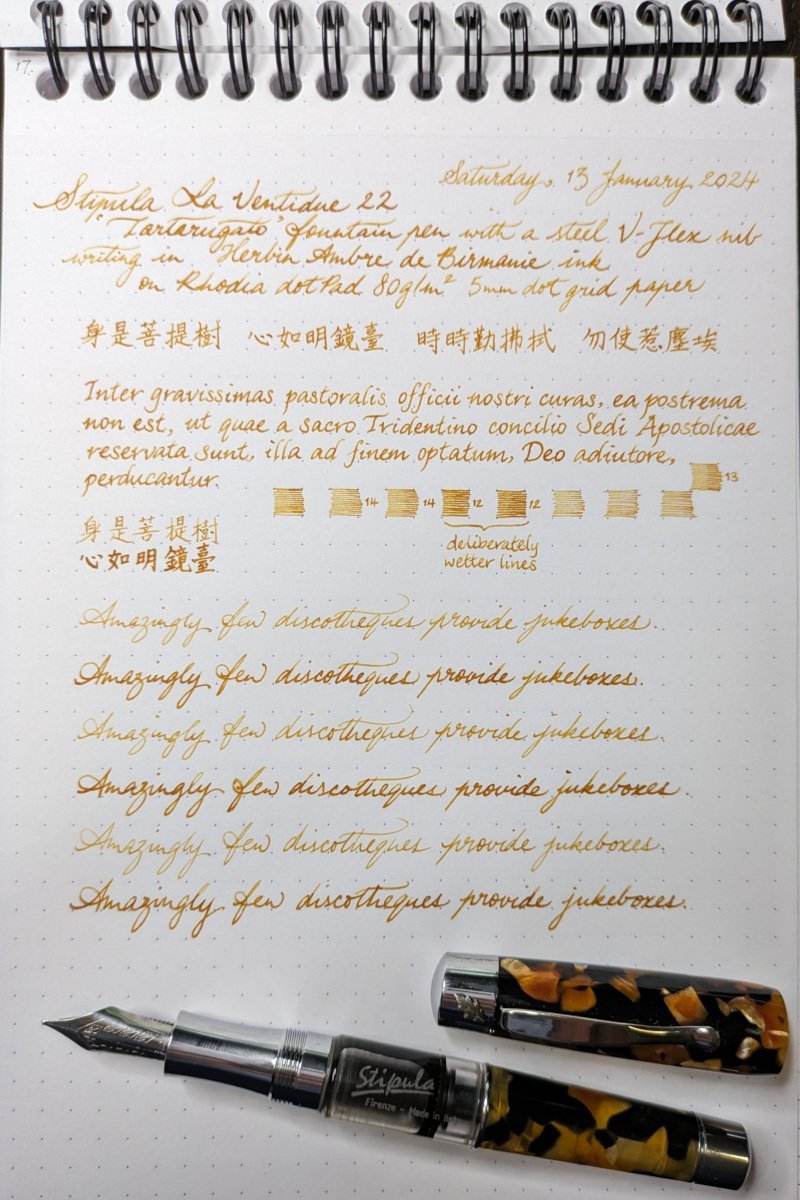 17.
Saturday, 13 January 2024
Stipula La Ventidue 22
"Tartarugato" fountain pen with a steel V-Flex nib
writing in Herbin Ambre de Birmanie ink
on Rhodia dotPad 80g/m² 5mm dot grid paper
身是菩提樹 心如明鏡臺 時時勤拂拭 勿使惹塵埃
Inter gravissimas pastoralis officii nostri curas, ea postrema
non est, ut quae a sacro Tridentino concilio Sedi Apostolicae
reservata sunt, illa ad finem optatum, Deo adiutore,
perducantur.
13
14 14 12 12
deliberately
wetter lines
身是菩提樹
心如明鏡臺
Amazingly few discotheques provide jukeboxes.
Amazingly few discotheques provide jukeboxes.
Amazingly few discotheques provide jukeboxes.
Amazingly few discotheques provide jukeboxes.
Amazingly few discotheques provide jukeboxes.
Amazingly few discotheques provide jukeboxes.
Stipula
Firenze - Made in